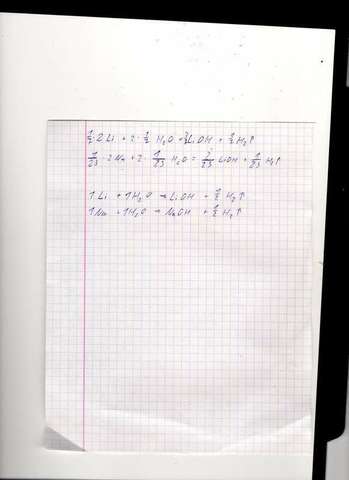 1/2 · 2 Li + 2 · 1/2 H₂O → 2/2 LiOH + 1/2 H₂↑
1/23 · 2 Na + 2 · 1/23 H₂O = 2/23 LiOH + 1/23 H₂↑
1 Li + 1H₂O → LiOH + 1/2 H₂↑
1Na + 1H₂O → NaOH + 1/2 H₂↑